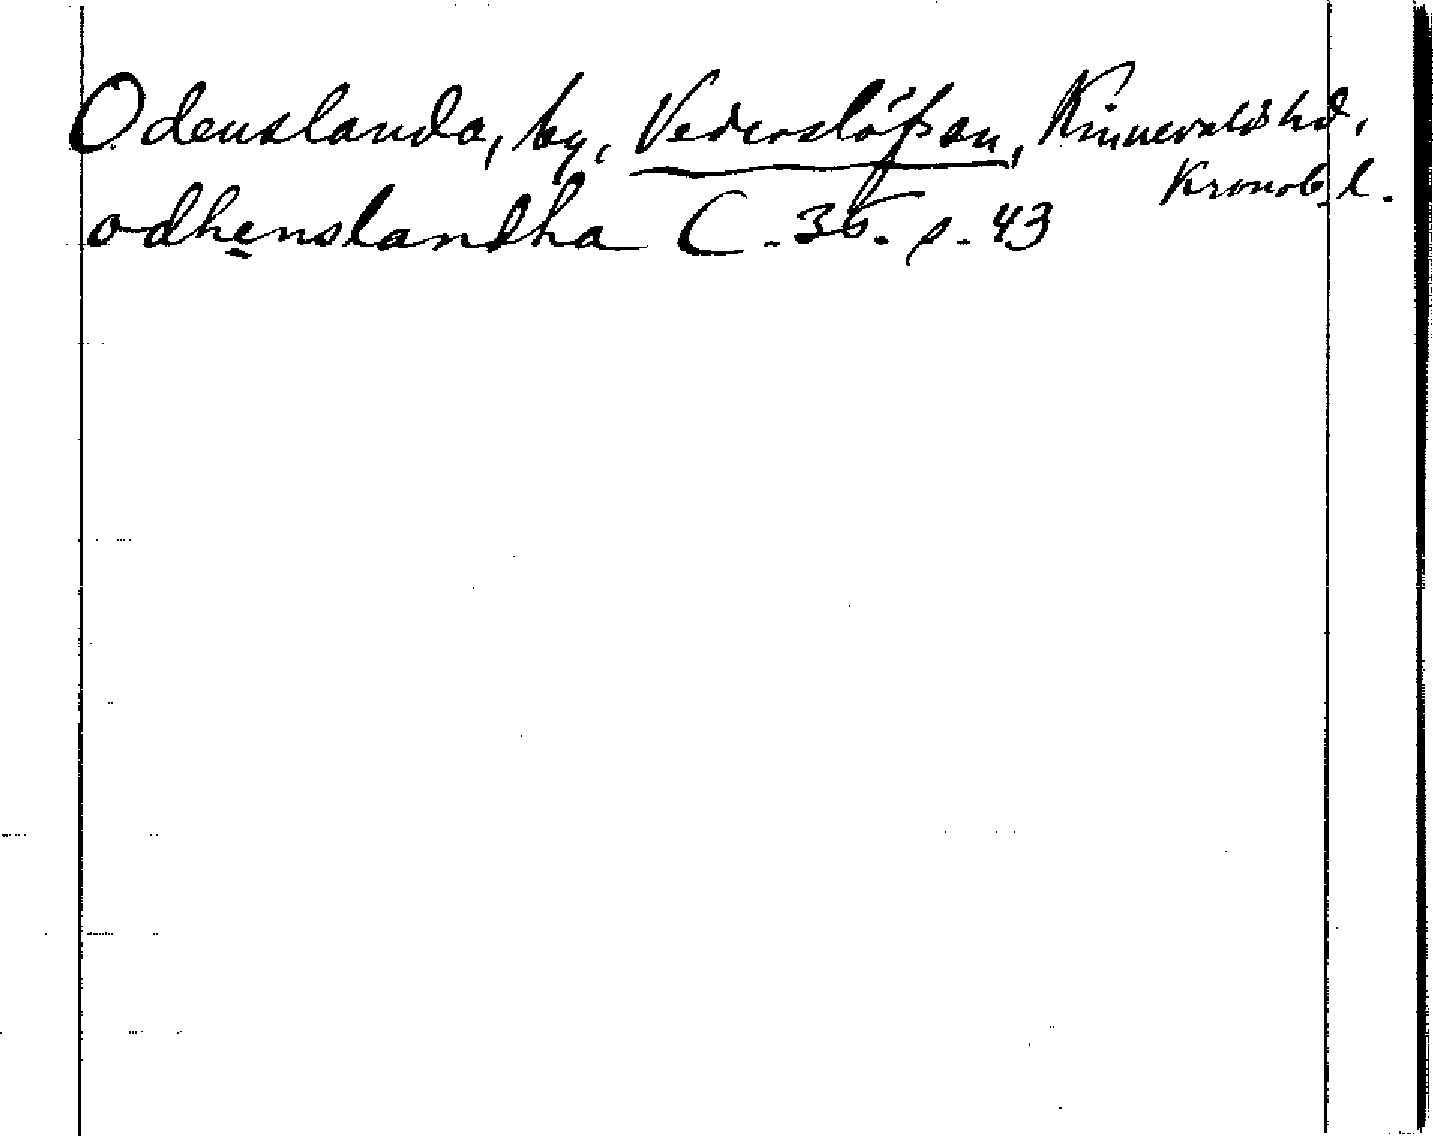 Odenslanda, by, Vederslöfs sn, Kinnevalds hd,
Kronob. l.
odhenslandha C. 35. s. 43